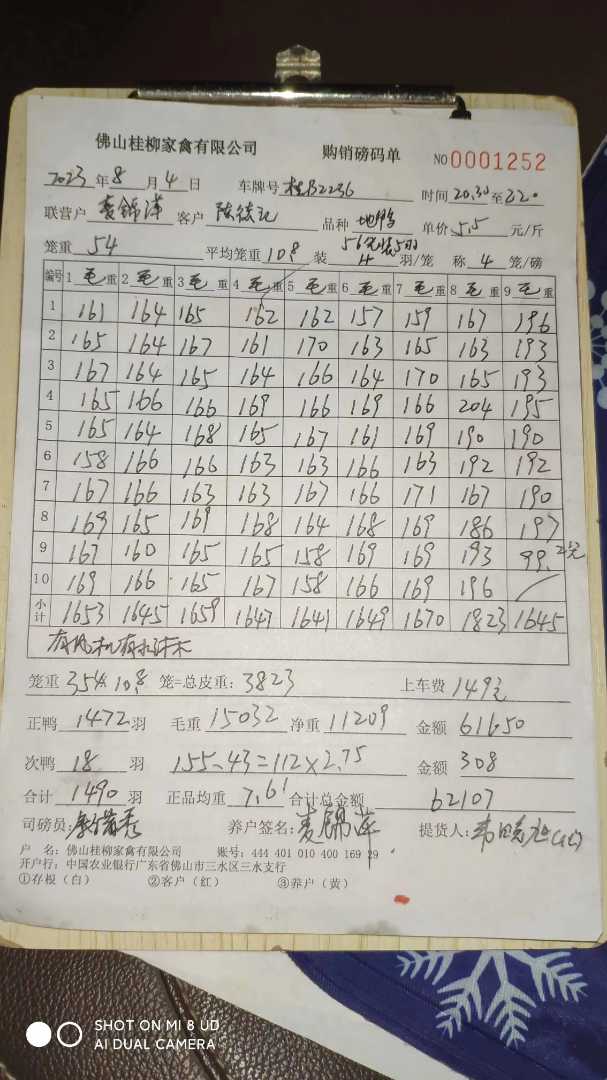 佛山桂柳家禽有限公司 购销磅码单 NO 0001252
2023年8月4日 车牌号 桂B2236 时间20.30至22.
联营户 麦锦萍 客户 品种 地鸭 单价5.5元/斤
笼重 54 平均笼重10.8 装 4 羽/笼 称4笼/磅
编号 1毛重 2毛重 3毛重 4毛重 5毛重 6毛重 7毛重 8毛重 9毛重
1 161 164 165 162 162 157 159 167 196
2 165 164 167 161 170 163 165 163 193
3 167 164 165 164 166 164 170 165 193
4 165 166 166 169 166 169 166 204 195
5 165 164 168 165 167 161 169 190 190
6 158 166 166 163 163 166 163 192 192
7 167 166 163 163 167 166 171 167 190
8 169 165 169 168 164 168 169 186 197
9 167 160 165 165 158 169 169 193 99.2元
10 169 166 165 167 158 166 169 196
小计 1653 1645 1659 1647 1641 1649 1670 1823 1645
笼重 354×10.8 笼=总皮重：3823 上车费 149元
正鸭 1472羽 毛重 15032 净重 11209 金额 61650
次鸭 18 羽 155-43=112×2.75 金额 308
合计 1490 羽 正品均重 7.61 合计总金额 62107
司磅员: 养户签名:麦锦萍 提货人:
户 名: 佛山桂柳家禽有限公司 账号: 444 401 010 400 169 29
开户行: 中国农业银行广东省佛山市三水区三水支行
①存根（白） ②客户（红） ③养户（黄）
SHOT ON MI 8 UD
AI DUAL CAMERA